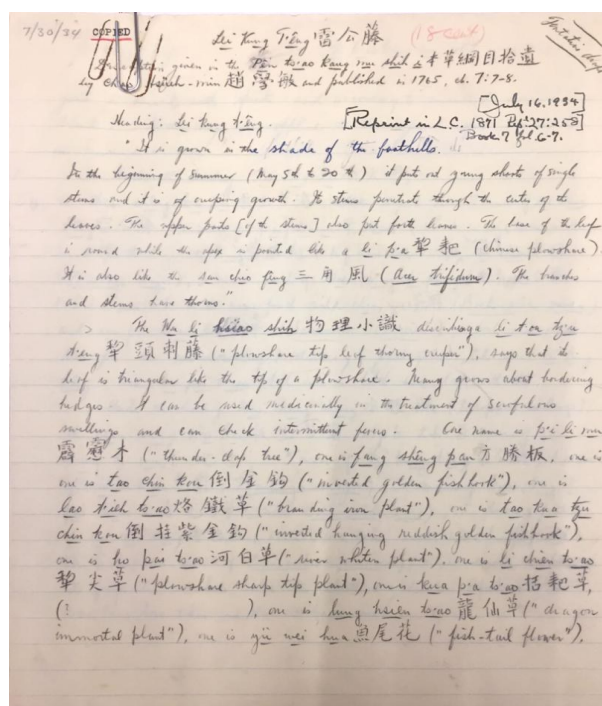 7/30/34 COPIED Lei Kung T'êng 雷公藤 (18 cent)
Description given in the Pên ts'ao kang mu shih i 本草綱目拾遺
by Chao Hsüeh-min 趙學敏 and published in 1765, ch. 7:7-8.
[July 16, 1934]
Heading: Lei kung t'êng. [Reprint in L.C. 1871 Pên:27:258]
Book 7 fol. 6-7.
"It is grown in the shade of the foothills.
In the beginning of summer (May 5th to 20th) it puts out young shoots of single
stems and it is of creeping growth. Its stems penetrate though the center of the
leaves. The upper parts [of the stems] also put forth leaves. The base of the leaf
is round while the apex is pointed like a li p'a 犂耙 (chinese plowshare).
It is also like the san chio fêng 三角風 (Acer trifidum). The branches
and stems have thorns."
The Wu li hsiao shih 物理小識 describing a li t'ou tz'u
t'eng 犂頭刺藤 ("plowshare tip leaf thorny creeper"), says that its
leaf is triangular like the tip of a plowshare. Many grows about bordering
hedges. It can be used medicinally in the treatment of scrofulous
swellings and can check intermittent fevers. One name is p'i li mu
霹靂木 ("thunder-clap tree"), one is fang shêng pan 方勝板, one is
one is tao chin kou 倒金鈎 ("inverted golden fishhook"), one is
lao t'ieh ts'ao 烙鐵草 ("branding iron plant"), one is tao kua tzu
chin kou 倒挂紫金鈎 ("inverted hanging reddish golden fishhook"),
one is ho pai ts'ao 河白草 ("river whiten plant"), one is li chien ts'ao
犂尖草 ("plowshare sharp tip plant"), one is kua p'a ts'ao 括耙草,
(? ), one is lung hsien ts'ao 龍仙草 ("dragon
immortal plant"), one is yü wei hua 魚尾花 ("fish-tail flower"),